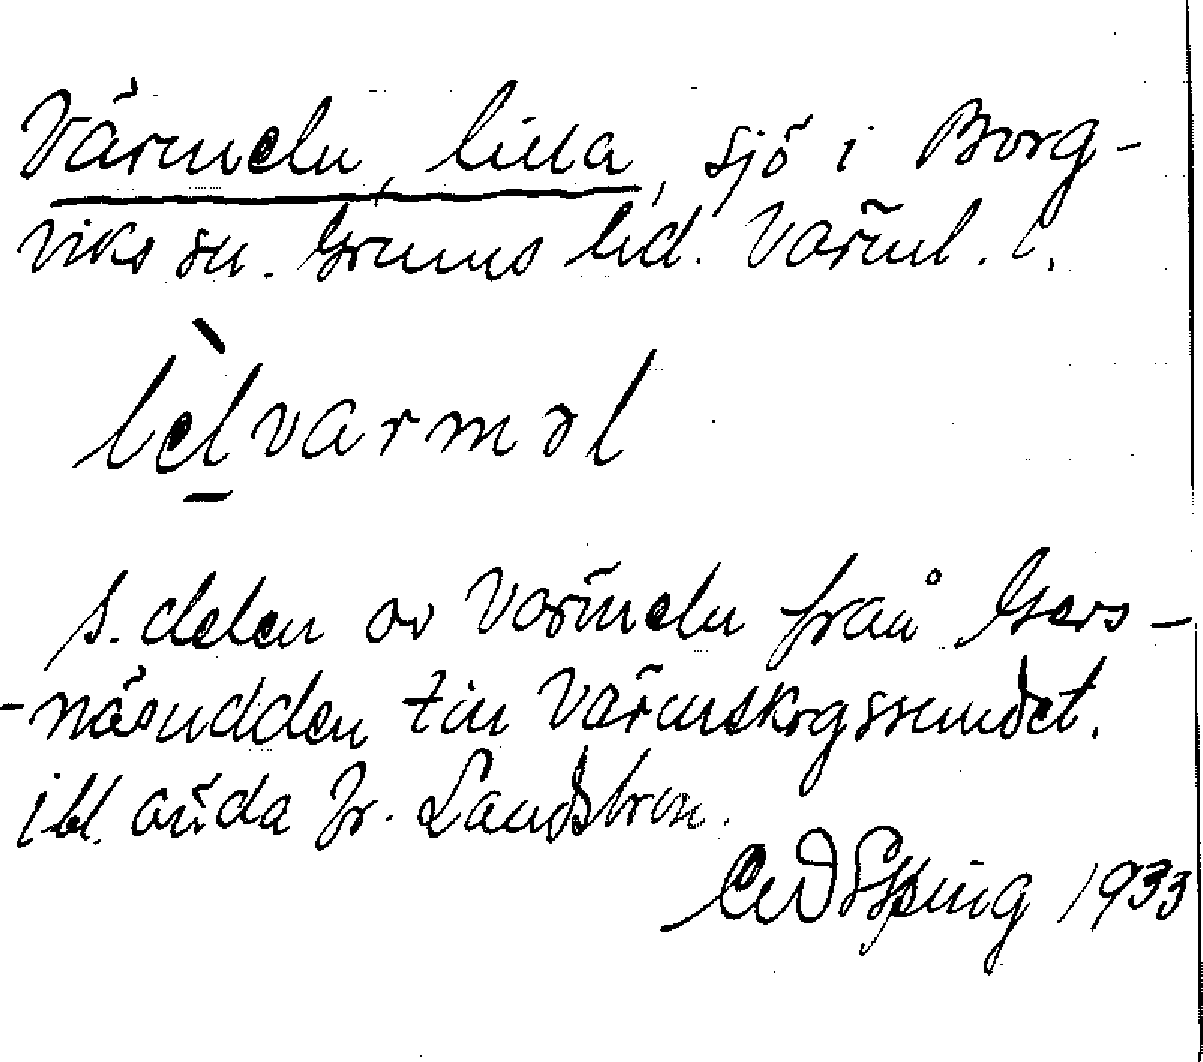 Värmeln, lilla, sjö i Borg-
viks sn. Grums hd. Värml. l.
lèlvarməl
S. delen av Värmeln från Gers-
-näsudden till Värmskogssundet.
ibl. ända fr. Landsbron.
1933